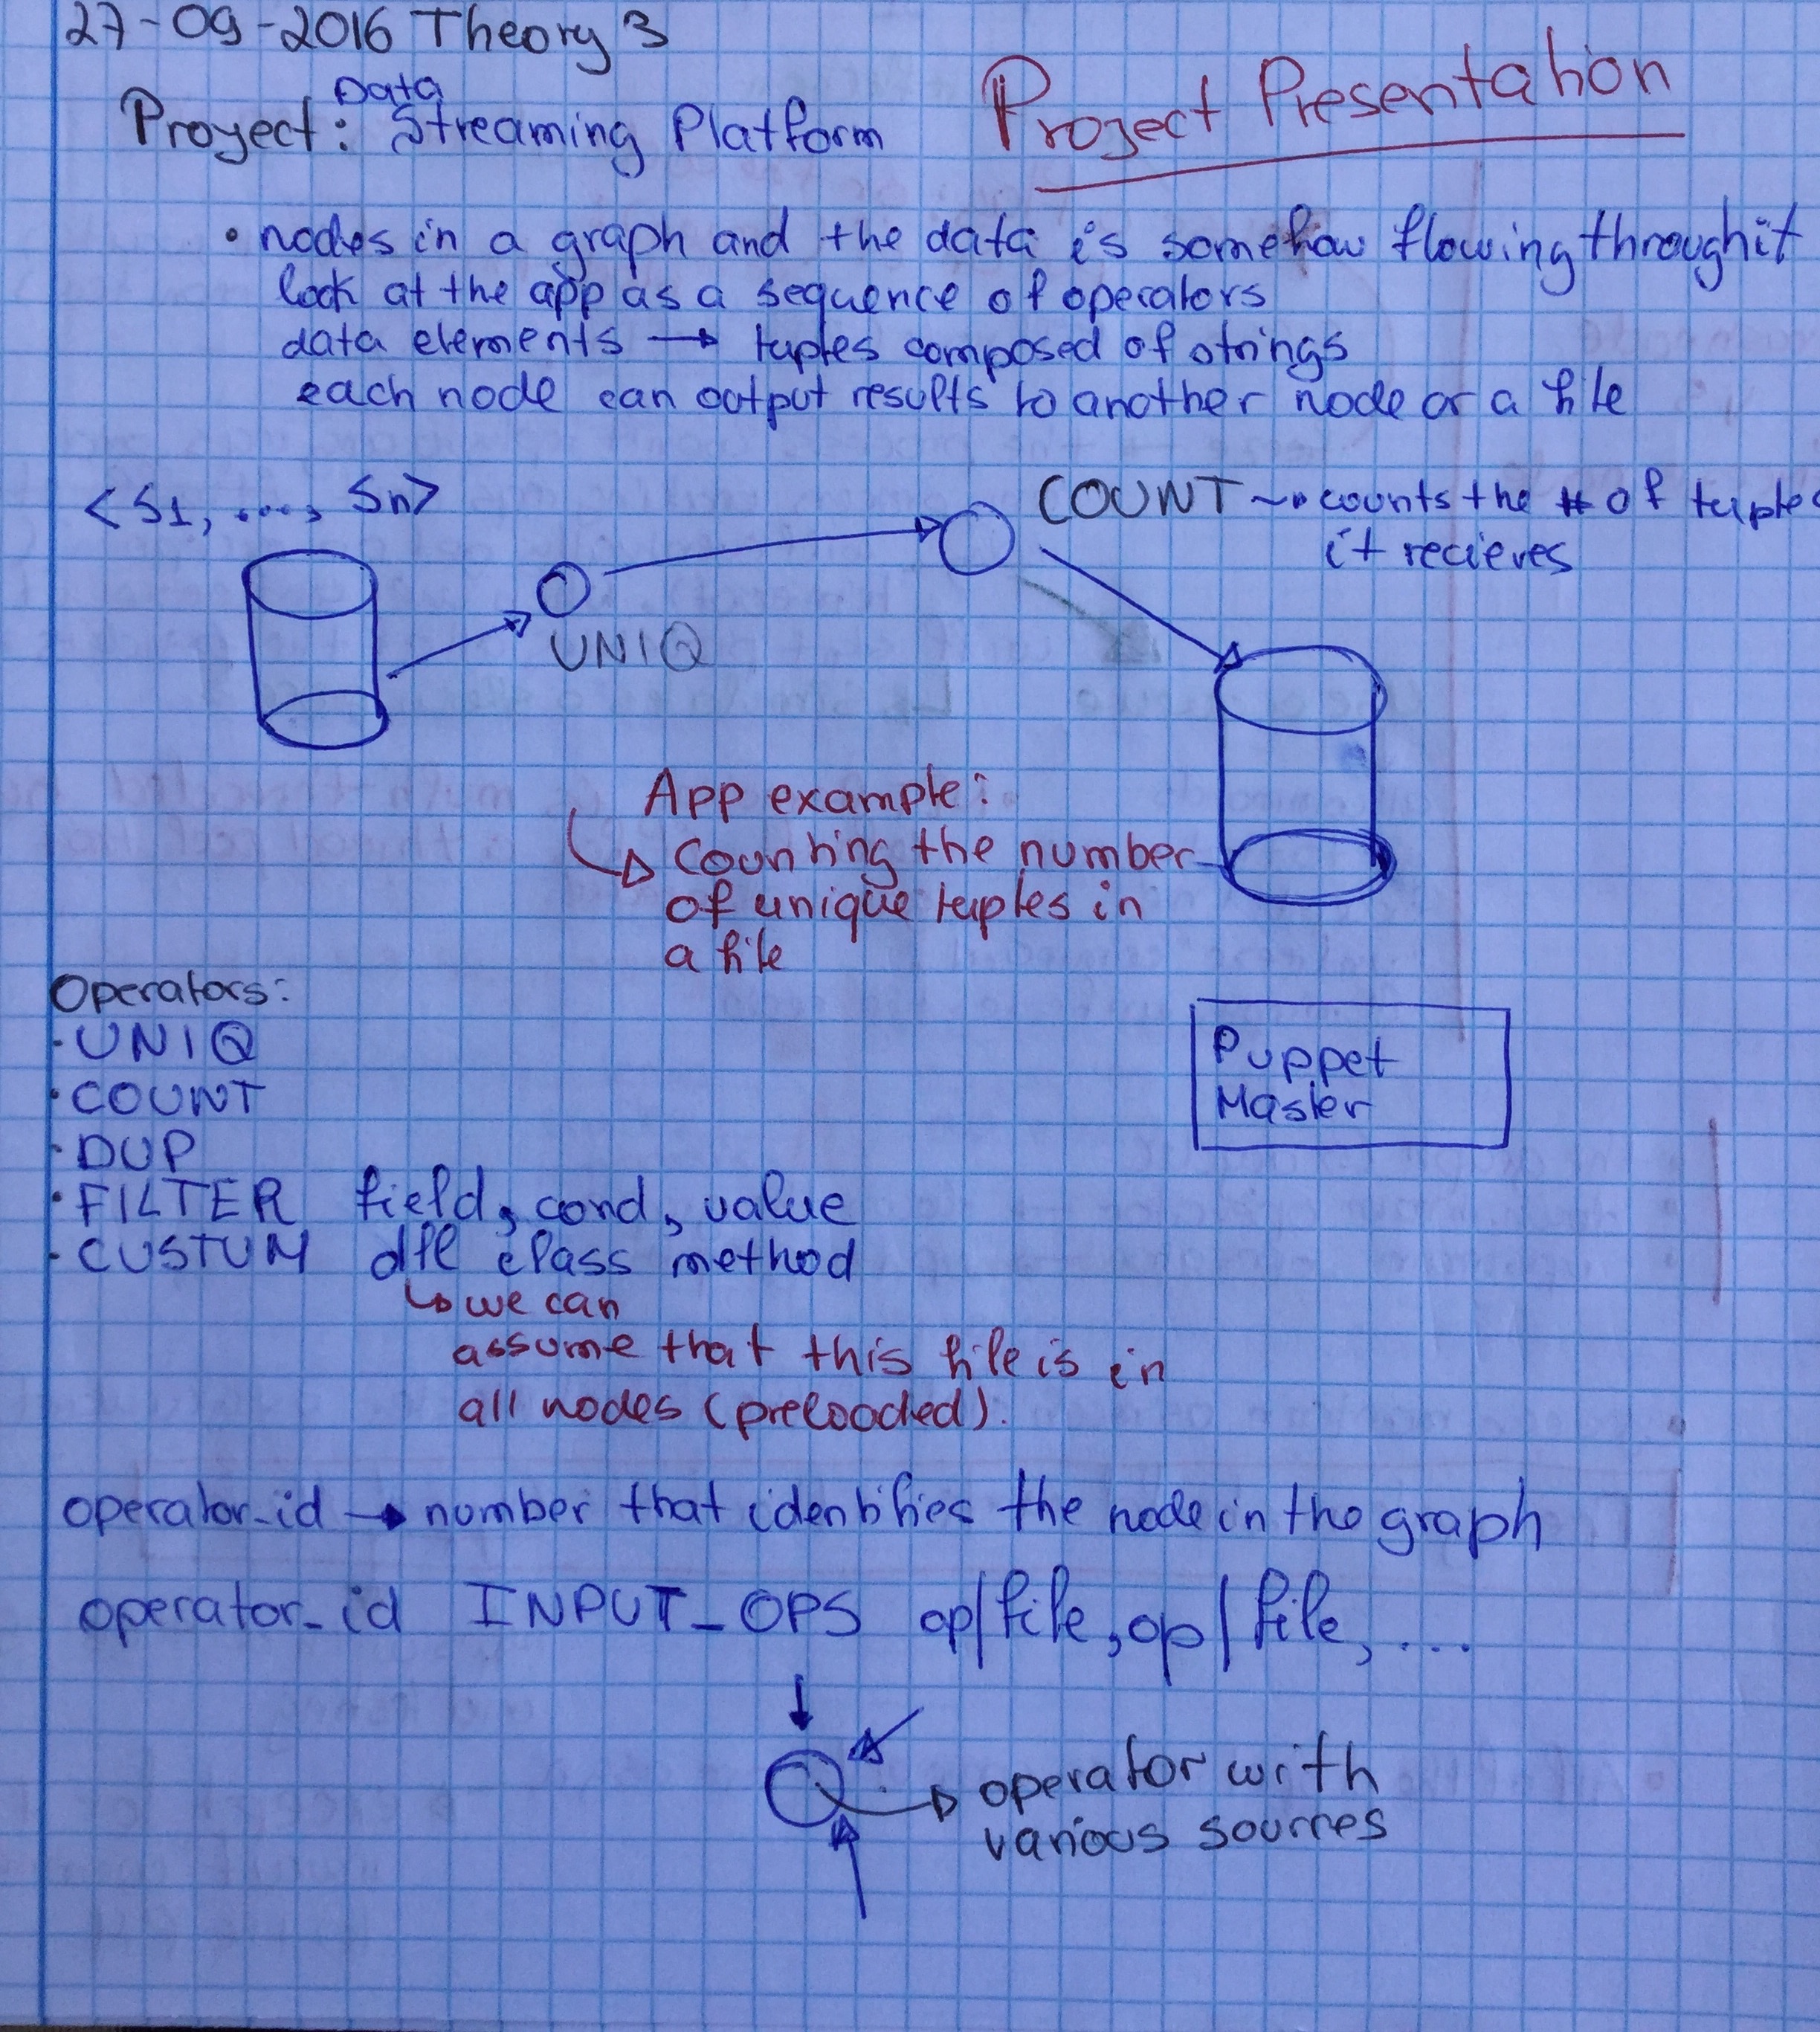 27-09-2016 Theory 3
Project Presentation
Data
Proyect: Streaming Platform
• nodes in a graph and the data is somehow flowing through it
look at the app as a sequence of operators
data elements → tuples composed of strings
each node can output results to another node or a file
<S1, ...., Sn>
COUNT → counts the # of tuples
it recieves
UNIQ
App example:
Counting the number
of unique tuples in
a file
Operators:
· UNIQ
· COUNT
· DUP
· FILTER field, cond, value
· CUSTUM dll class method
↳ we can
assume that this file is in
all nodes (preloaded).
Puppet
Master
operator_id → number that identifies the node in the graph
operator_id INPUT_OPS op|file, op|file, ...
operator with
various sources